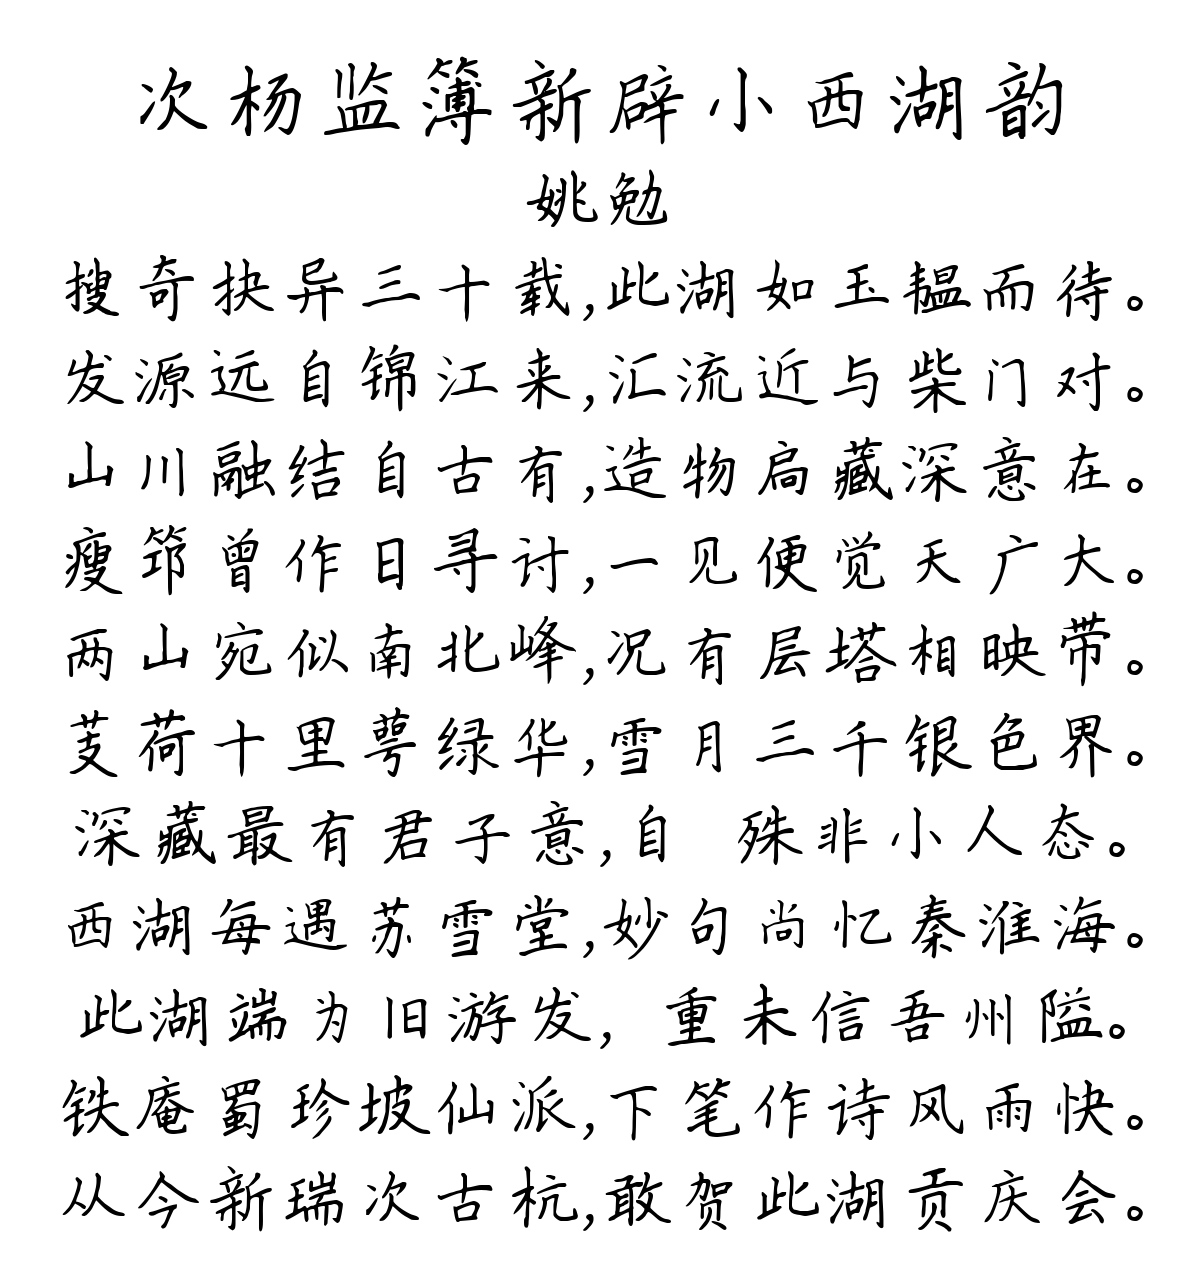 次杨监簿新辟小西湖韵
姚勉
搜奇抉异三十载,此湖如玉韫而待。
发源远自锦江来,汇流近与柴门对。
山川融结自古有,造物扃藏深意在。
瘦筇曾作日寻讨,一见便觉天广大。
两山宛似南北峰,况有层塔相映带。
芰荷十里萼绿华,雪月三千银色界。
深藏最有君子意,自 殊非小人态。
西湖每遇苏雪堂,妙句尚忆秦淮海。
此湖端为旧游发,重未信吾州隘。
铁庵蜀珍坡仙派,下笔作诗风雨快。
从今新瑞次古杭,敢贺此湖贡庆会。